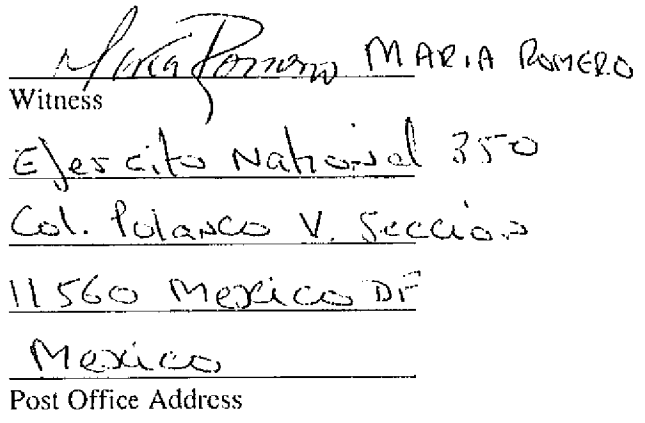 Maria Romero MARIA ROMERO
Witness
Ejercito National 350
Col. Polanco V. Seccion
11560 Mexico DF
Mexico
Post Office Address